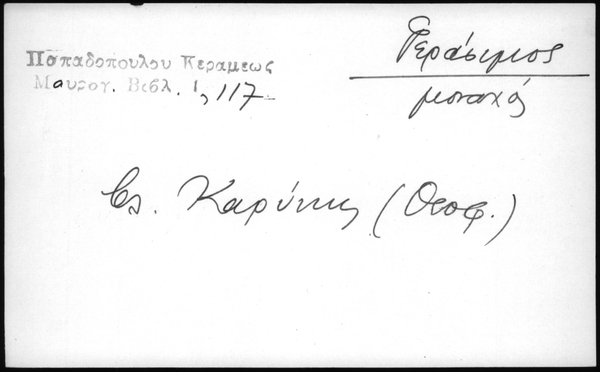 Παπαδοπούλου Κεραμεως
Μαυρογ. Βιβλ. 1, 117
Γεράσιμος
μοναχός
Βλ. Καρύκης (Θεοφ.)